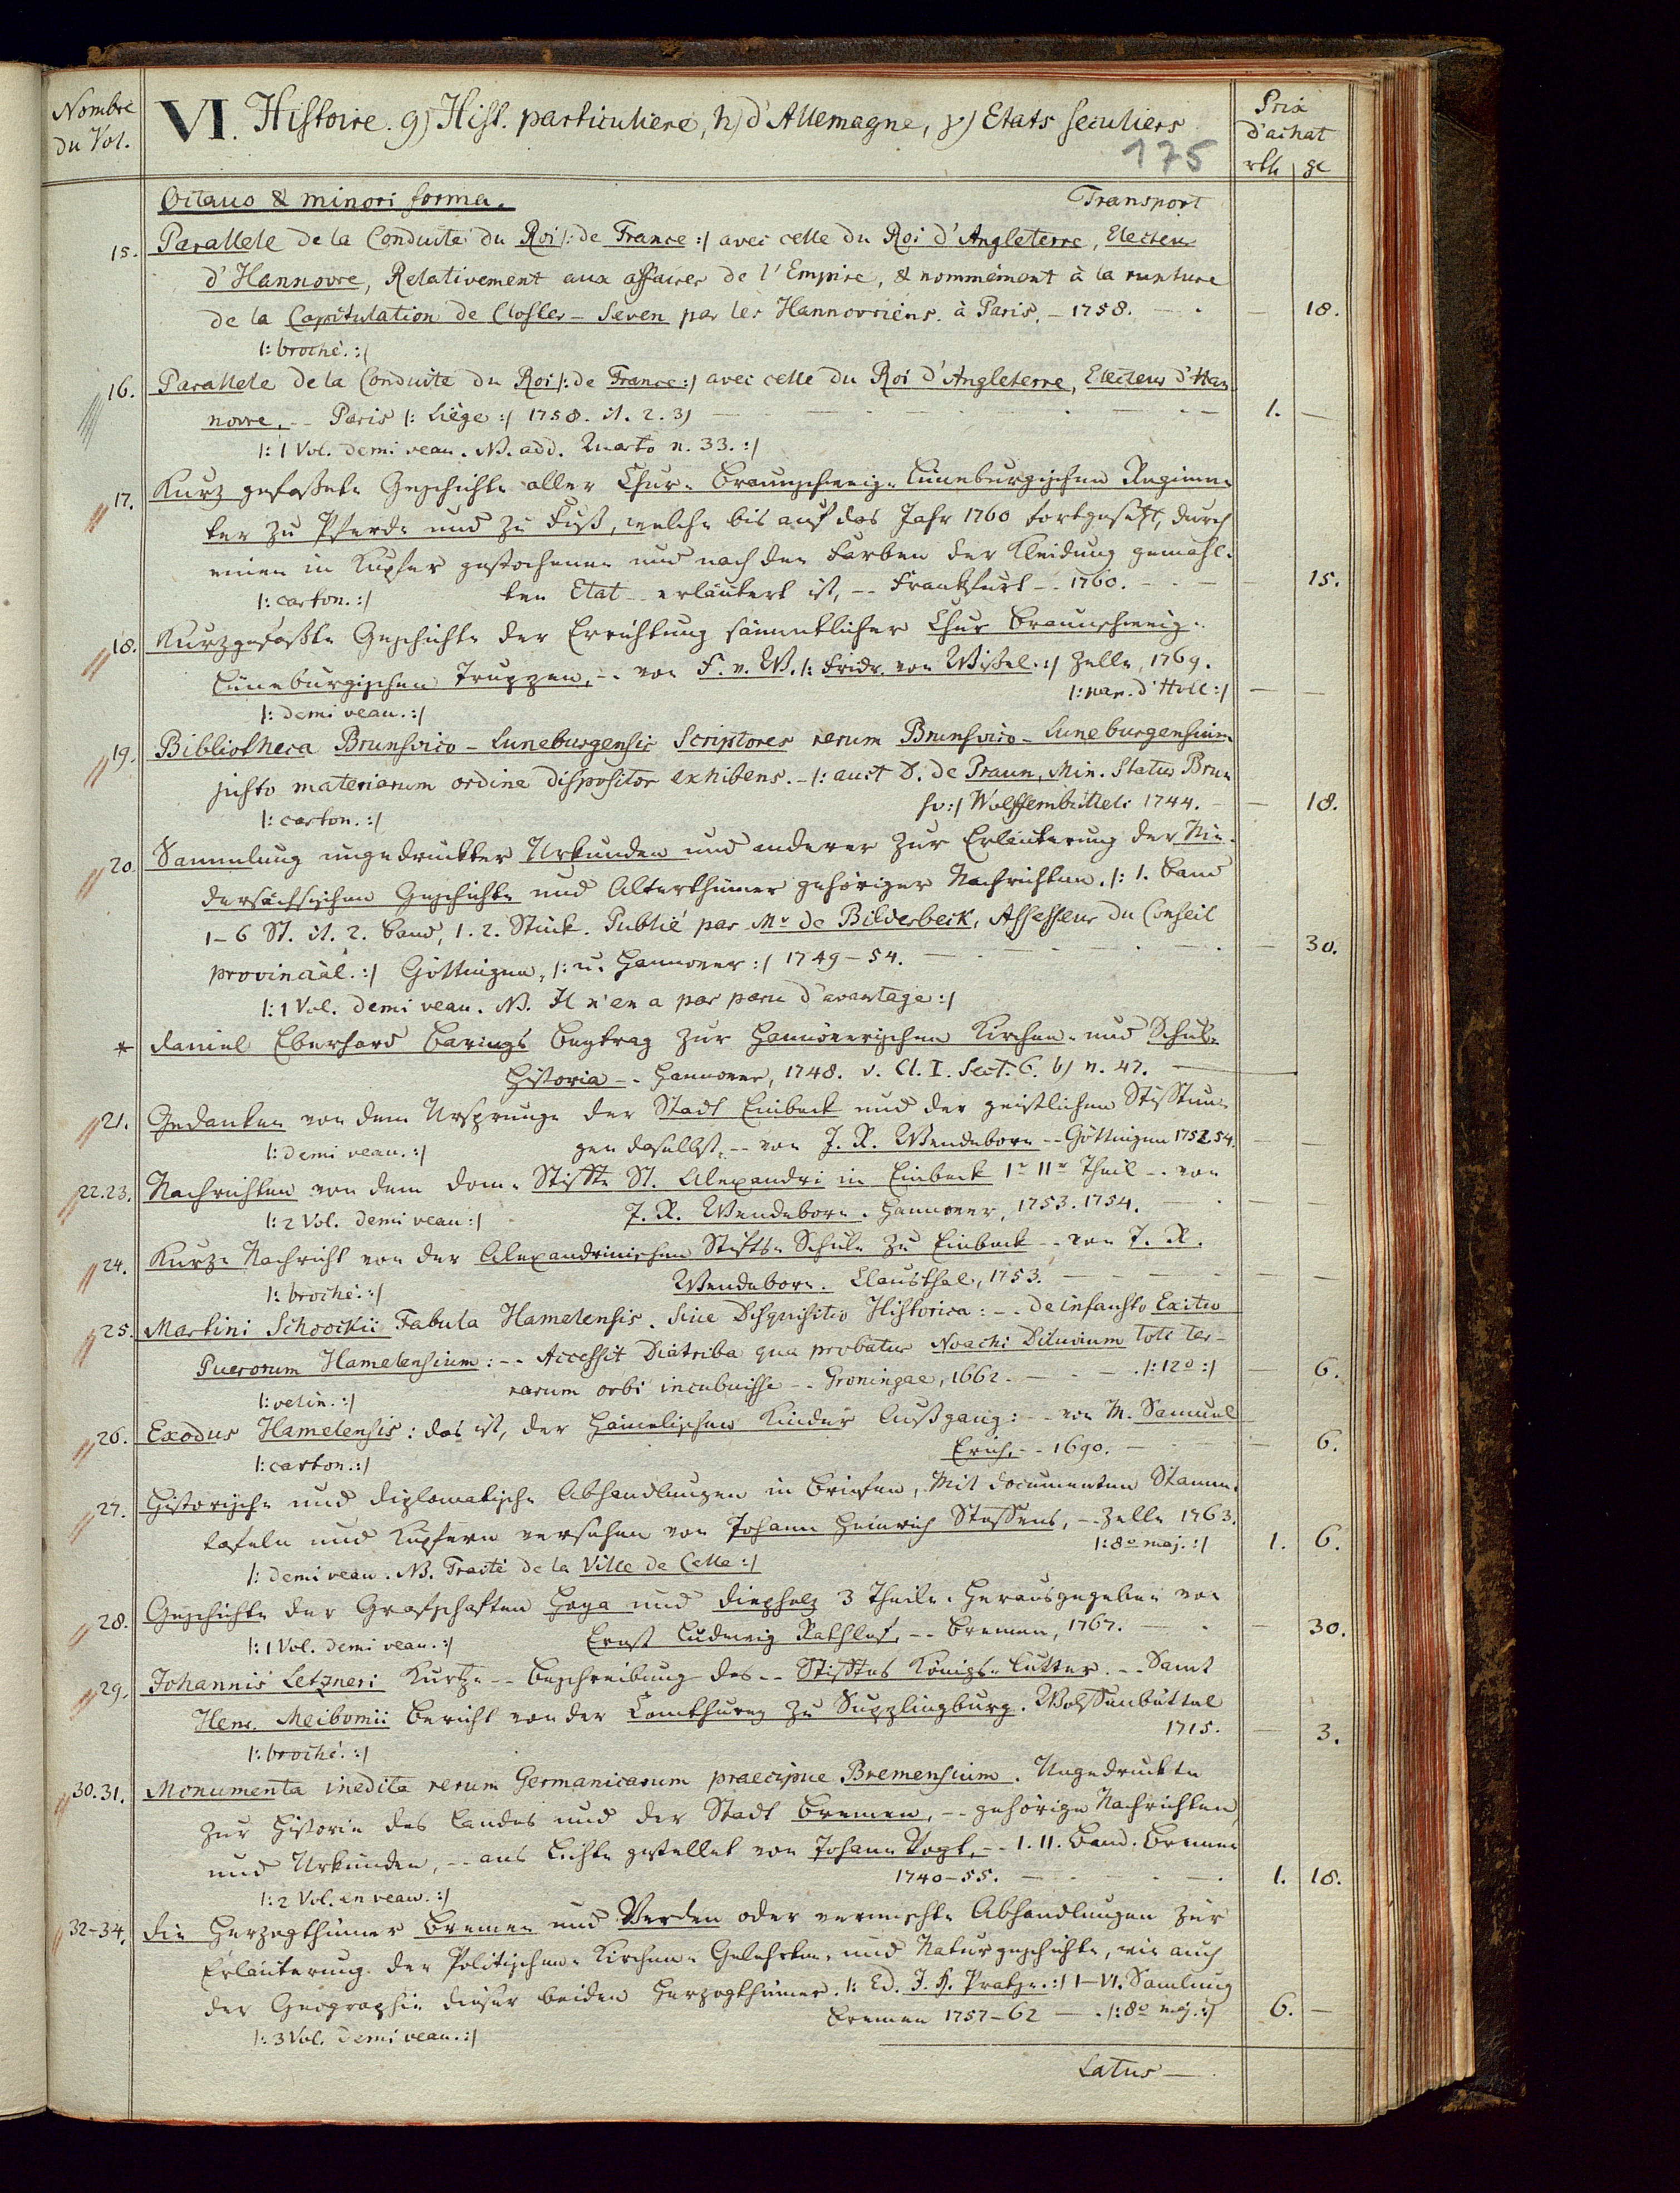 Nombre du Vol.
VI. Histoire. g) Hist. particuliere, h) d'Allemagne, γ) Etats seculiers
Prix d'achat
rth gr
175
Octavo & minori forma. Transport
15. Parallele de la Conduite du Roi |: de France :| avec celle du Roi d'Angleterre, Electeur
d'Hannovre, Relativement aux affaires de l'Empire, & nommément à la rupture
de la Capitulation de Closter-Seven par les Hannovriens. à Paris. - 1758. — 18.
|: broché. :|
16. Parallele de la Conduite du Roi |: de France :| avec celle du Roi d'Angleterre, Electeur d'Han
novre, -- Paris |: Liège :| 1758. it. 2. 3) 1. —
|: 1 Vol. demi veau. NB. add. Quarto n. 33. :|
17. Kurz gefaßete Geschichte aller Chur-Braunschweig-Lüneburgischen Regimen-
ter zu Pferde und zu Fuß, welche bis auf das Jahr 1760 fortgesetzt, durch
einen in Kupfer gestochenen und nach den Farben der Kleidung gemahl-
|: carton. :| ten Etat -- erläutert ist, -- Frankfurt -- 1760. — 15.
18. Kurzgefaßte Geschichte der Errichtung sämmtlicher Chur Braunschweig-
Lüneburgischen Truppen, -- von F. v. W. |: Fridr. von Wißel. :| Zelle, 1769.
|: demi veau. :| |: par. d'Holl :| — —
19. Bibliotheca Brunsvico-Luneburgensis Scriptores rerum Brunsvico-Luneburgensium
justo materiarum ordine dispositos exhibens. - |: auct D. de Praun, Min. Status Brun
sv :| Wolffembüttel: 1744. — 18.
|: carton. :|
20 Sammlung ungedruckter Urkunden und anderer zur Erläuterung der Nie-
dersächsischen Geschichte und Alterthümer gehöriger Nachrichten. |: 1. Band
1-6 St. it. 2. Band, 1. 2. Stück. Publié par Mr de Bilderbeck, Assesseur du Conseil
provincial. :| Göttingen, |: u. Hannover :| 1749-54. — 30.
|: 1 Vol. demi veau. NB. Il n'en a pas paru d'avantage :|
* Daniel Eberhard Barings Beytrag zur Hannöverischen Kirchen- und Schul-
Historia -- Hannover, 1748. v. Cl. I. Sect. 6. b) n. 47. —
21. Gedanken von dem Ursprunge der Stadt Einbeck und der geistlichen Stifftun-
|: demi veau. :| gen daselbst, -- von J. R. Wendeborn -- Göttingen 1752 54. — —
22. 23. Nachrichten von dem Dom-Stiffte St. Alexandri in Einbeck Ir IIr Theil -- von
|: 2 Vol. demi veau :| J. R. Wendeborn. Hannover, 1753. 1754. — —
24. Kurze Nachricht von der Alexandrinischen Stifts-Schule zu Einbeck -- von J. R.
|: broché. :| Wendeborn. Clausthal, 1753. — —
25. Martini Schoockii Fabula Hamelensis. Sive Disquisitio Historica: -- de infausto Exitu
Puerorum Hamelensium: -- Accessit Diatriba qua probatur Noachi Diluvium toti ter-
rarum orbi incubuisse -- Groningae, 1662. |: 12o :| — 6.
|: velin. :|
26. Exodus Hamelensis: das ist, der Hämelischen Kinder Außgang: -- von M. Samuel
Erich, -- 1690. — 6.
|: carton. :|
27. Historische und diplomatische Abhandlungen in Briefen, Mit Documenten Stamm-
tafeln und Kupfern versehen von Johann Heinrich Steffens, -- Zelle 1763.
|: 8o maj. :| 1. 6.
|: demi veau. NB. Traité de la Ville de Celle :|
28. Geschichte der Grafschaften Hoya und Diepholz 3 Theile. Herausgegeben von
|: 1 Vol. demi veau. :| Ernst Ludewig Rathlef, -- Bremen, 1767. — 30.
29. Johannis Letzneri Kurtze -- Beschreibung des -- Stifftes Königs-Lutter. -- Samt
Henr. Meibomii Bericht von der Comthurey zu Supplingburg. Wolffenbüttel
1715. — 3.
|: broché. :|
30. 31. Monumenta inedita rerum Germanicarum praecipue Bremensium. Ungedruckte
zur Historie des Landes und der Stadt Bremen, -- gehörige Nachrichten,
und Urkunden, -- ans Licht gestellet von Johann Vogt, -- I. II. Band. Bremen
1740-55. 1. 18.
|: 2 Vol. en veau. :|
32-34. Die Herzogthümer Bremen und Verden oder vermischte Abhandlungen zur
Erläuterung der Politischen- Kirchen- Gelehrten- und Naturgeschichte, wie auch
der Geographie dieser beiden Herzogthümer. |: Ed. J. H. Pratje. :| I-VI. Samlung
Bremen 1757-62 — |: 8o maj. :| 6. —
|: 3 Vol. demi veau. :|
Latus —